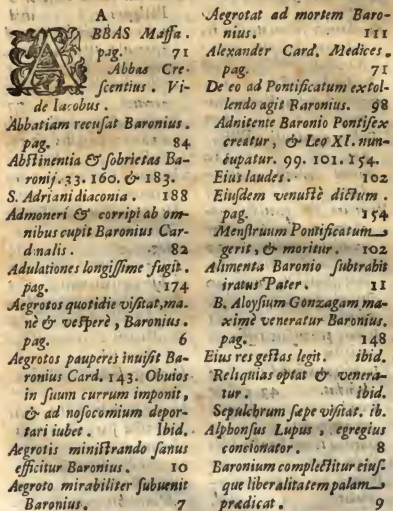 A
ABBAS Massa.
pag. 71
Abbas Cre-
scentius. Vi-
de Iacobus.
Abbatiam recusat Baronius.
pag. 84
Abstinentia & sobrietas Ba-
ronij. 33. 160. & 183.
S. Adriani diaconia. 188
Admoneri & corripi ab om-
nibus cupit Baronius Car-
dinalis. 82
Adulationes longissime fugit.
pag. 174
Aegrotos quotidie visitat, ma-
nè & vesperè, Baronius.
pag. 6
Aegrotos pauperes inuisit Ba-
ronius Card. 143. Obuios
in suum currum imponit,
& ad nosocomium depor-
tari iubet. Ibid.
Aegrotis ministrando sanus
efficitur Baronius. 10
Aegroto mirabiliter subuenit
Baronius. 7
Aegrotat ad mortem Baro-
nius. 111
Alexander Card. Medices.
pag. 71
De eo ad Pontificatum extol-
lendo agit Baronius. 98
Adnitente Baronio Pontifex
creatur, & Leo XI. nun-
cupatur. 99. 101. 154.
Eius laudes. 102
Eiusdem venustè dictum.
pag. 154
Menstruum Pontificatum
gerit, & moritur. 102
Alimenta Baronio subtrahit
iratus Pater. 11
B. Aloysium Gonzagam ma-
ximè veneratur Baronius.
pag. 148
Eius res gestas legit. ibid.
Reliquias optat & venera-
tur. ibid.
Sepulchrum sæpe visitat. ib.
Alphonsus Lupus, egregius
concionator. 8
Baronium complectitur eius-
que liberalitatem palam
prædicat. 9